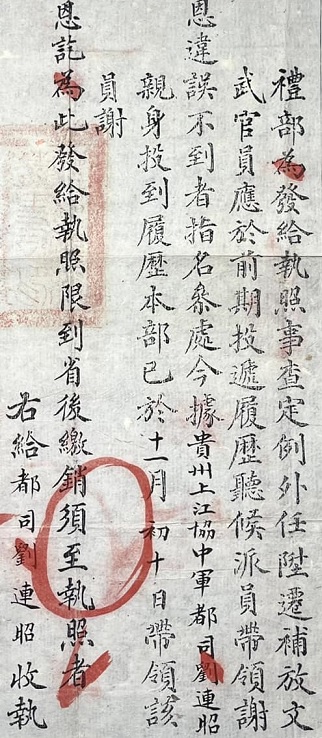 禮部為發給執照事查定例外任陞遷補放文
武官員應於前期投遞履歷聽候派員帶領謝
恩違誤不到者指名叅處今據貴州上江協中軍都司劉連昭
親身投到履歷本部已於十一月初十日帶領該
員謝
恩訖為此發給執照限到省後繳銷須至執照者
右給都司劉連昭收執